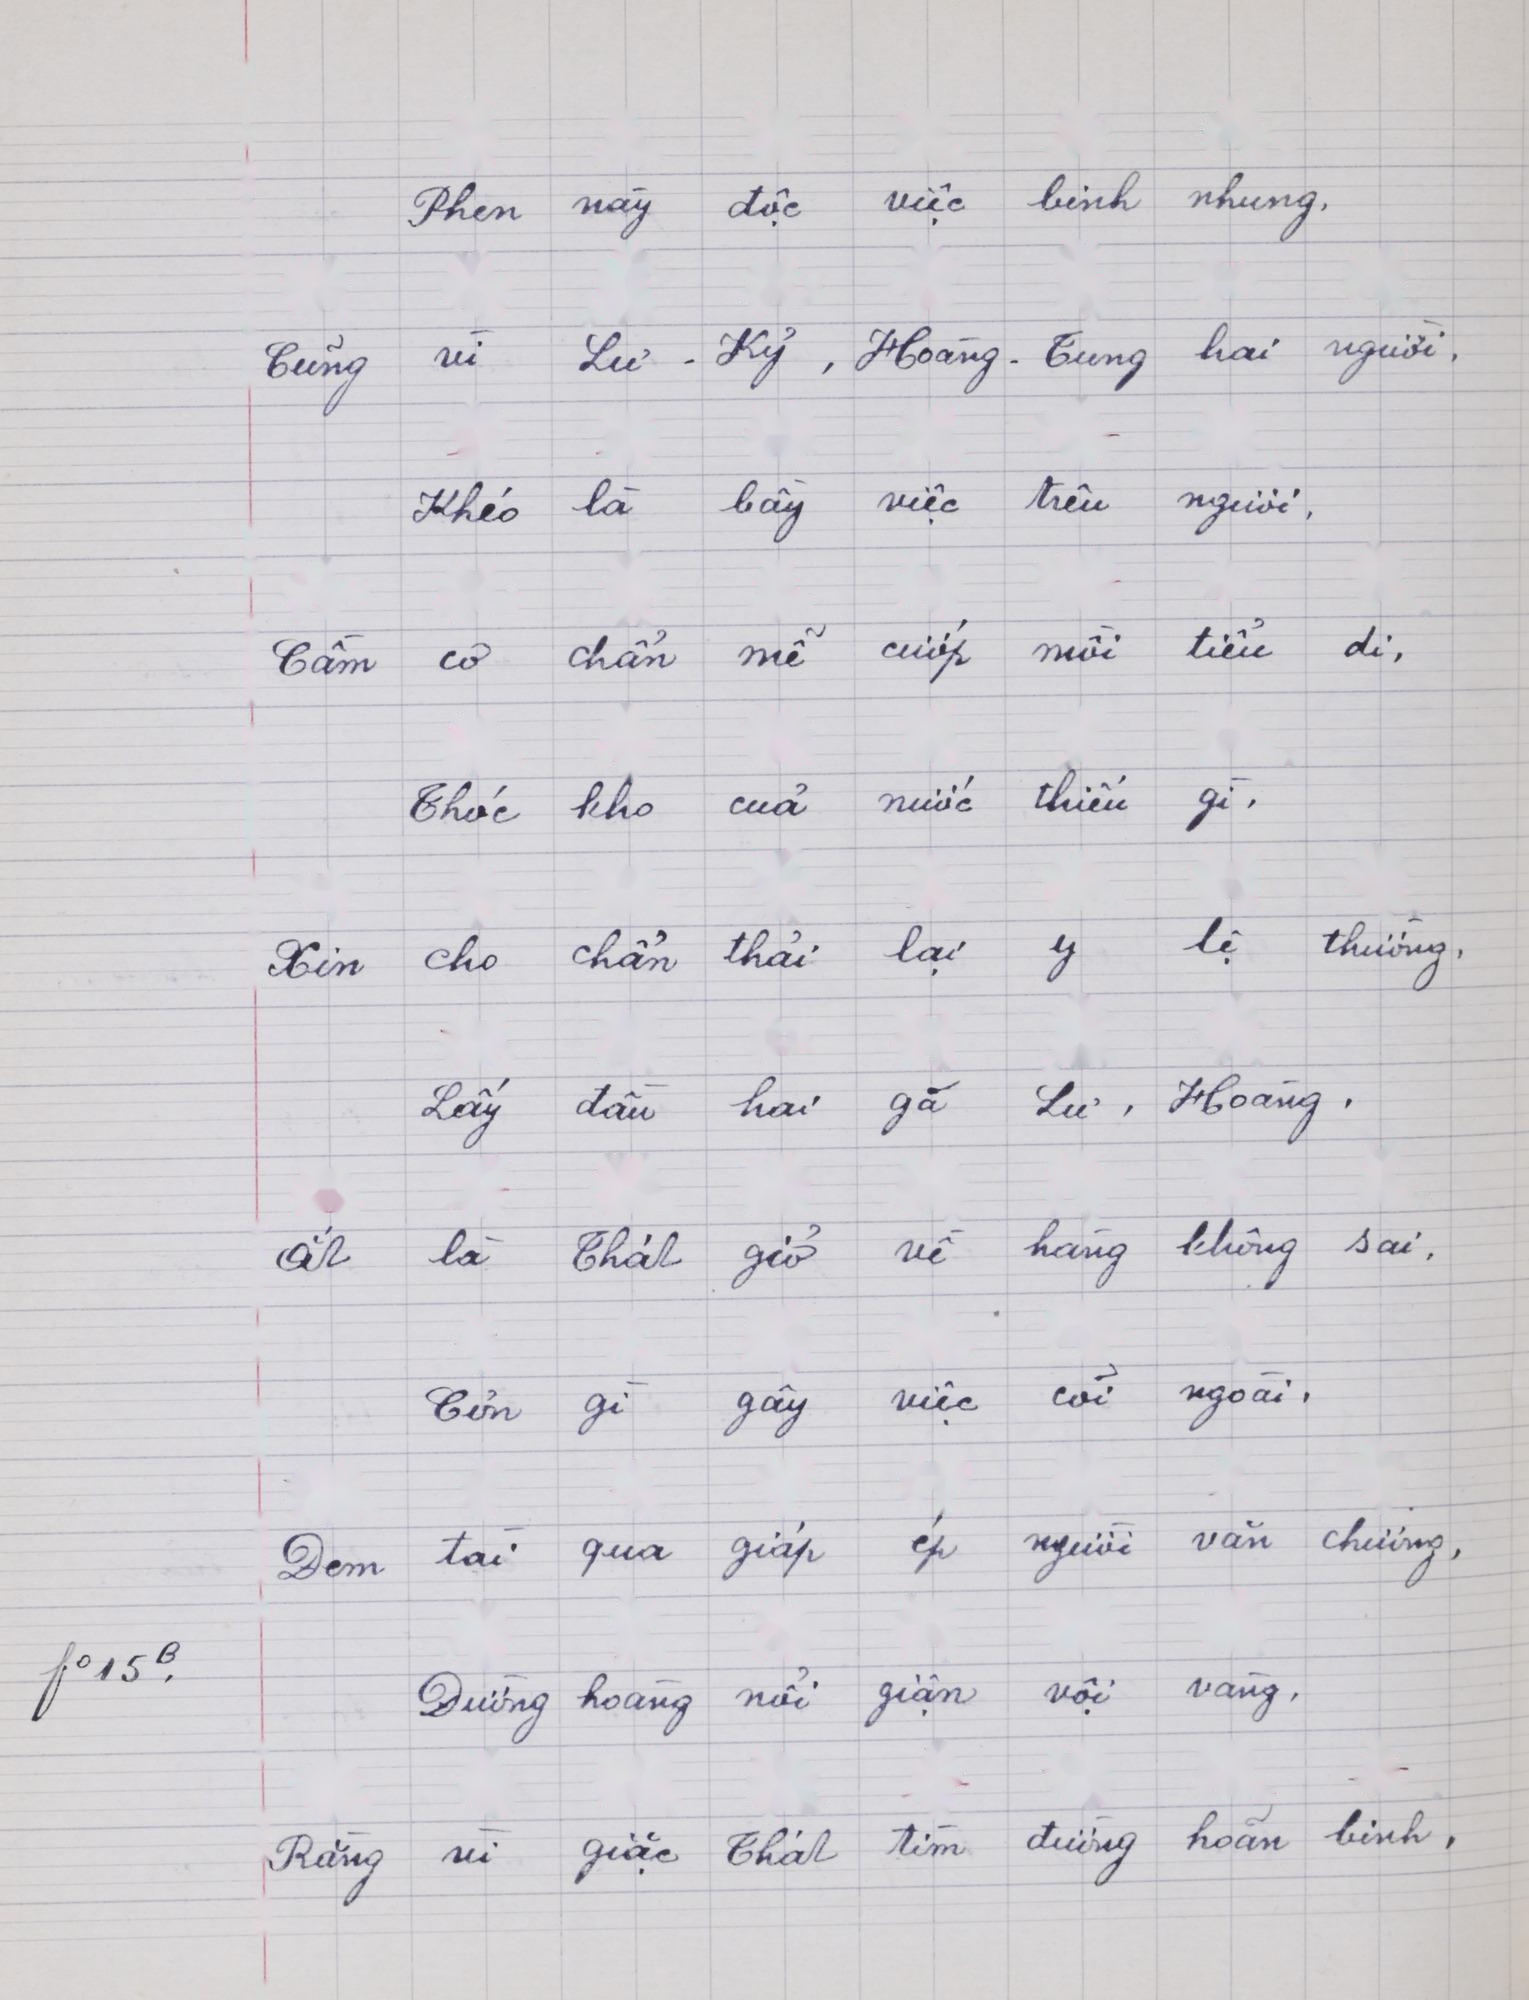 Phen này độc việc binh nhung,
Cũng vì Lư - Kỷ, Hoàng - Tung hai người,
Khéo là bầy việc trêu ngươi,
Cầm cơ chẩn mễ cướp mồi tiểu di,
Thóc kho của nước thiếu gì,
Xin cho chẩn thải lại y lệ thường,
Lấy đầu hai gã Lư, Hoàng,
Ắt là Thát giở về hàng không sai,
Cớn gì gây việc cõi ngoài,
Đem tài qua giáp ép người văn chương,
f° 15 B.
Đường hoàng nổi giận vội vàng,
Rằng vì giặc Thát tìm đường hoãn binh,